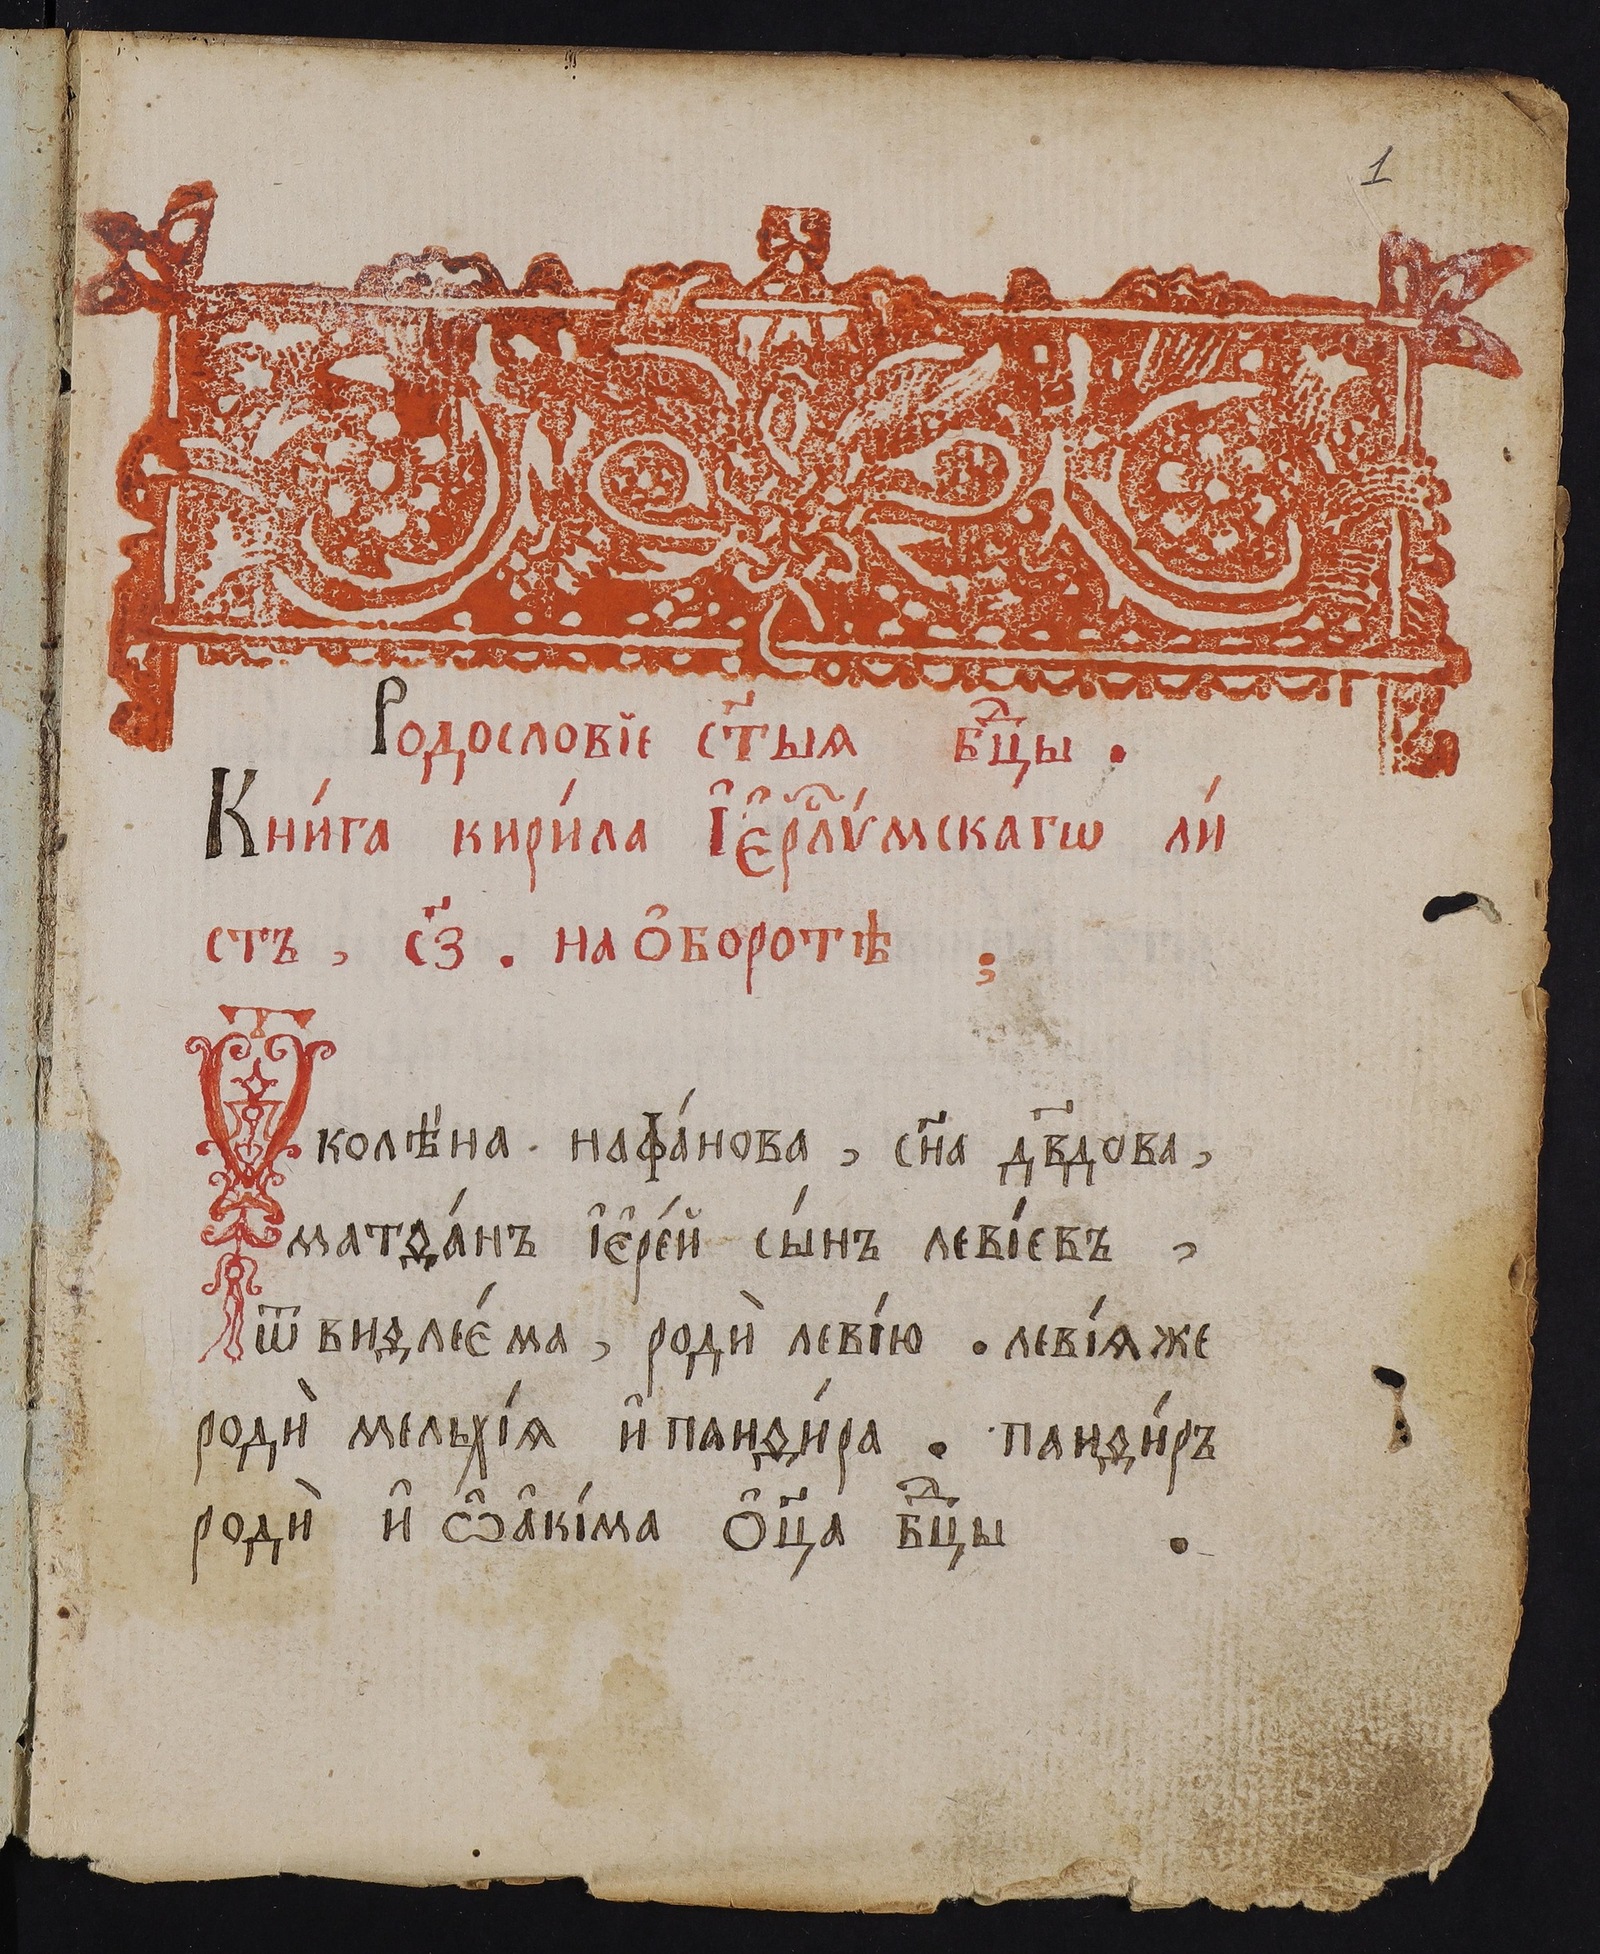 1
Родословїе ст҃ыя бцⷣы .
Кни́га кири́ла і҆є҆рⷭ҇лѵ́мскагѡ ли́
стъ , с҃з . на ѻ҆боротѣ ;
Ѿ колѣ́на . нафа́нова , сн҃а дв҃дова ,
матѳа́нъ і҆є҆ре́й сы́нъ леві́евъ ,
ѿ виѳлеє́ма , родѝ леві́ю . леві́я же
родѝ мельхі́я и҆ панѳи́ра . панѳи́ръ
родѝ и҆ ѡ҆а҆кі́ма ѻ҆ц҃а бцⷣы .